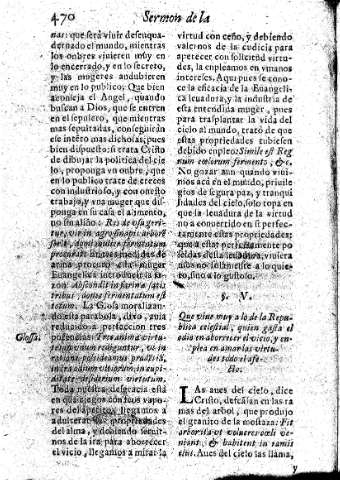 470 Sermon de la
nas: que será vivir desenqua-
dernado el mundo, mientras
los onbres vivieren muy en
lo encerrado, y en lo secreto,
y las mugeres anduvieren
muy en lo publico. Que bien
aconseja el Angel, quando
buscan a Dios, que se entren
en el sepulcro, que mientras
mas sepultadas, conseguiràn
ese intéto mas dichosas; pues
bien dispuesto: si trata Cristo
de dibujar la politica del cie-
lo, proponga vn onbre, que
en lo publico trate de creces
con industrioso, y con onesto
trabajo, y vna muger que dis-
ponga en su casa el alimento,
no sin aliño:
La Glosa moralizan-
do esta parabola, dixo, avia
reducido a perfeccion tres
potencias: Tres anima virtu-
Toda nuestra desgracia está
en que ciegos con los vapo-
res del apetito, llegamos a
adulterar las propiedades
del alma, y debiendo servir-
nos de la ira para aborrecer
el vicio, llegamos a mirar la
Glossa.
virtud con ceño, y debiendo
valernos de la cudicia para
apetecer con solicitud virtu-
des, la enpleamos en vmanos
intereses. Aqui pues se cono-
ce la eficacia de la Evangeli-
ca levadura, y la industria de
esta entendida muger, pues
para trasplantar la vida del
cielo al mundo, trató de que
estas propiedades tubiesen
debido enpleo: Simile est Reg
num cœlorum fermento, &c.
No gozar aun quando vivi-
mos acá en el mundo, privile
gios de segura paz, y tranqui
lidades del cielo, solo topa en
que la levadura de la virtud
no a convertido en si perfec-
tamente estas propiedades;
que a estar perfectamente po
seidas desta levadura, viviera
años no solamente a lo quie-
to, sino a lo gustoso.
§. V.
Que vive muy a lo de la Repu-
blica celestial, quien gasta el
odio en aborrecer el vicio, y en-
plea en amar las virtu-
des todo el afe-
cto.
LAs aves del cielo, dice
Cristo, descansan en las ra-
mas del arbol, que produjo
el granito de la mostaza: Fit
arbor, ita ut volucres cœli ve-
niant, & habitent in ramis
eius. Aves del cielo las llama,
y